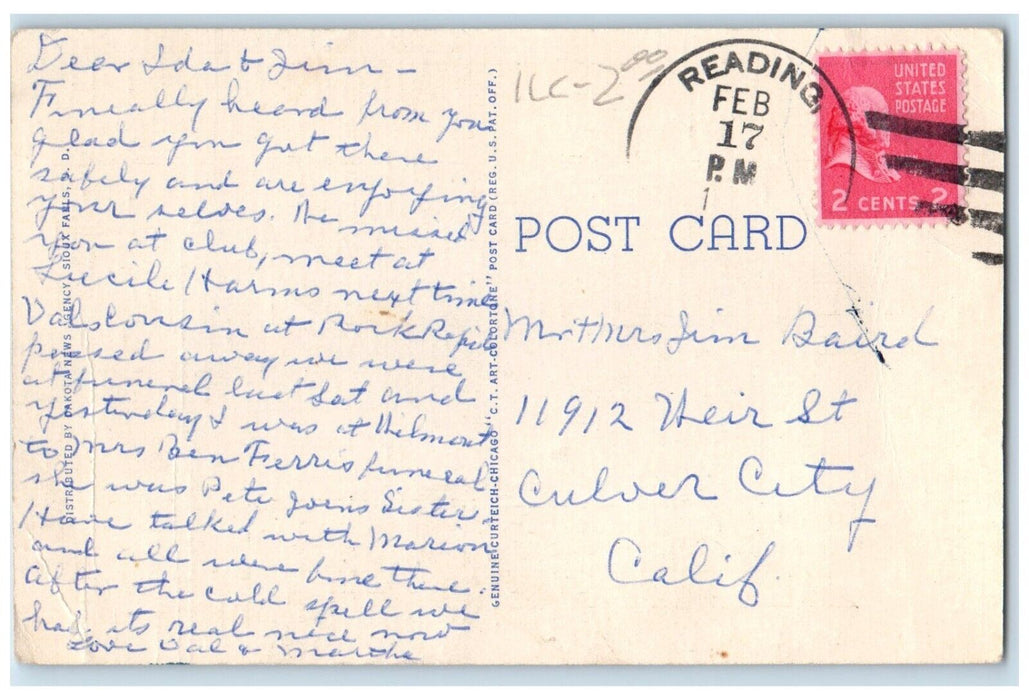 Dear Ida & Jim –
Fineally heard from you
glad you got there
safely and are enjoying
your selves. He missed
you at club, meet at
Lucile Harms next time
Vals Cousin at Rock Rapids
passed away we were
at funeral last Sat and
yesterday I was at
to Mrs Ben Ferris funeral
she was Pete Sister.
Have talked with Marion
and all were fine there.
After the cold spell we
had its real nice now
Love Val & Martha
DISTRIBUTED BY DAKOTA NEWS AGENCY, SIOUX FALLS, S. D.
GENUINE CURTEICH-CHICAGO "C.T. ART-COLORTONE" POST CARD (REG. U.S. PAT. OFF.)
READING
FEB
17
P.M
UNITED
STATES
POSTAGE
2 CENTS 2
POST CARD
Mr & Mrs Jim Baird
11912 Weir St
Culver City
Calif.